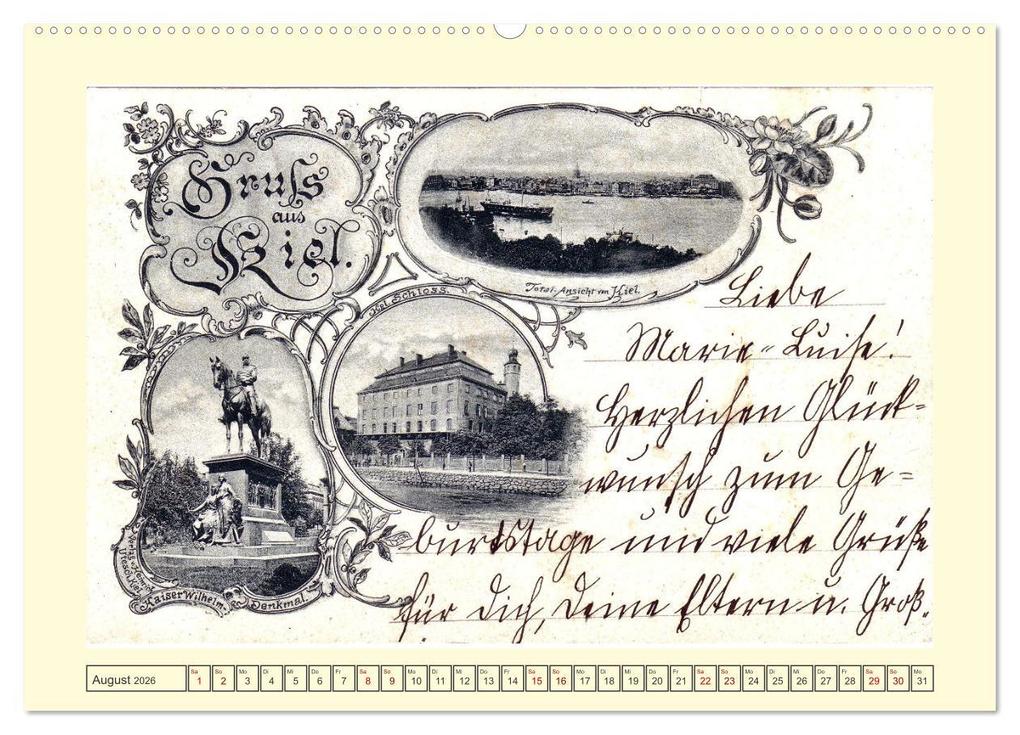 Gruss
aus
Kiel.
Total-Ansicht von Kiel.
Kgl. Schloss.
Kaiser Wilhelm-Denkmal.
Liebe
Marie-Luise!
Herzlichen Glück-
wunsch zum Ge-
burtstage und viele Grüße
für Dich, Deine Eltern u. Groß-
August 2026
Sa So Mo Di Mi Do Fr Sa So Mo Di Mi Do Fr Sa So Mo Di Mi Do Fr Sa So Mo Di Mi Do Fr Sa So Mo
1 2 3 4 5 6 7 8 9 10 11 12 13 14 15 16 17 18 19 20 21 22 23 24 25 26 27 28 29 30 31